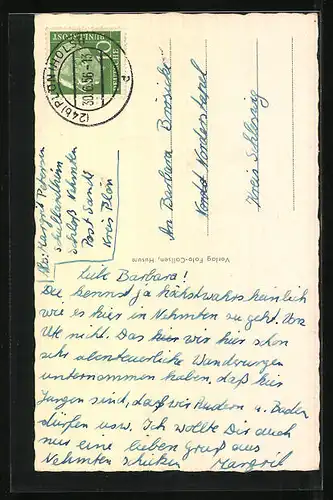 (24b) PLÖN (HOLST)
30.6.56
DEUTSCHE BUNDESPOST
Abs: Margrit Petersen
Schullandheim
Schloß Nehmten
Post Sande
Kreis Plön
An Barbara
Kreis Schleswig
Verlag Foto-Collisen, Husum
Liebe Barbara!
Du kennst ja höchstwahrscheinlich
wie es hier in Nehmten zu geht. Von
Ute nicht. Das hier wir hier schon
sehr abenteuerliche Wanderungen
unternommen haben, daß hier
Jungen sind, daß wir Rudern u. Baden
dürfen usw. Ich wollte Dir auch
nur eine lieben Gruß aus
Nehmten schicken Margrit